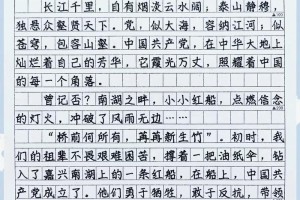 长江千里，自有烟淡云水阔；泰山静得，
独悉众壑贤天下。党，似大海，容纳江河；似
苍穹，包容山壑。中国共产党，在中华大地上
灿烂着自己的芬华，它霞光万丈，照耀着中国
的每一个角落。
曾记否？南湖之畔，小小红船，点燃信念
的灯火，冲破了风雨无边……
“桥前何所有，苒苒新生竹”。初时，我
们的祖辈不畏艰难困苦，撑着一把油纸伞，钻
入了嘉兴南湖上的一条红船，在船上，中国共
产党成立了。他们勇于牺牲，敢于反抗，带领